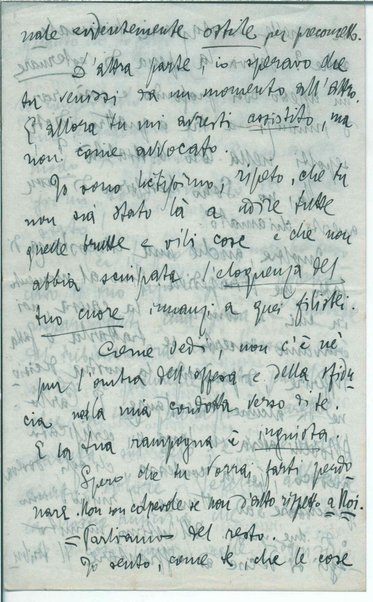 nale evidentemente ostile per preconcetto.
D'altra parte, io speravo che
tu venissi da un momento all'altro.
E allora tu mi avresti assistito, ma
non come avvocato.
Io sono lietissimo, ripeto, che tu
non sia stato là a udire tutte
quelle brutte e vili cose e che non
abbia sciupata l'eloquenza del
tuo cuore innanzi a quei filistei.
Come vedi, non c'è nè
pur l'ombra dell'offesa e della sfidu-
cia nella mia condotta verso di te.
E la tua rampogna è ingiusta.
Spero che tu vorrai farti perdo-
nare. Non son colpevole se non d'alto rispetto a Noi.
= Parliamo del resto..
Io sento, come te, che le cose